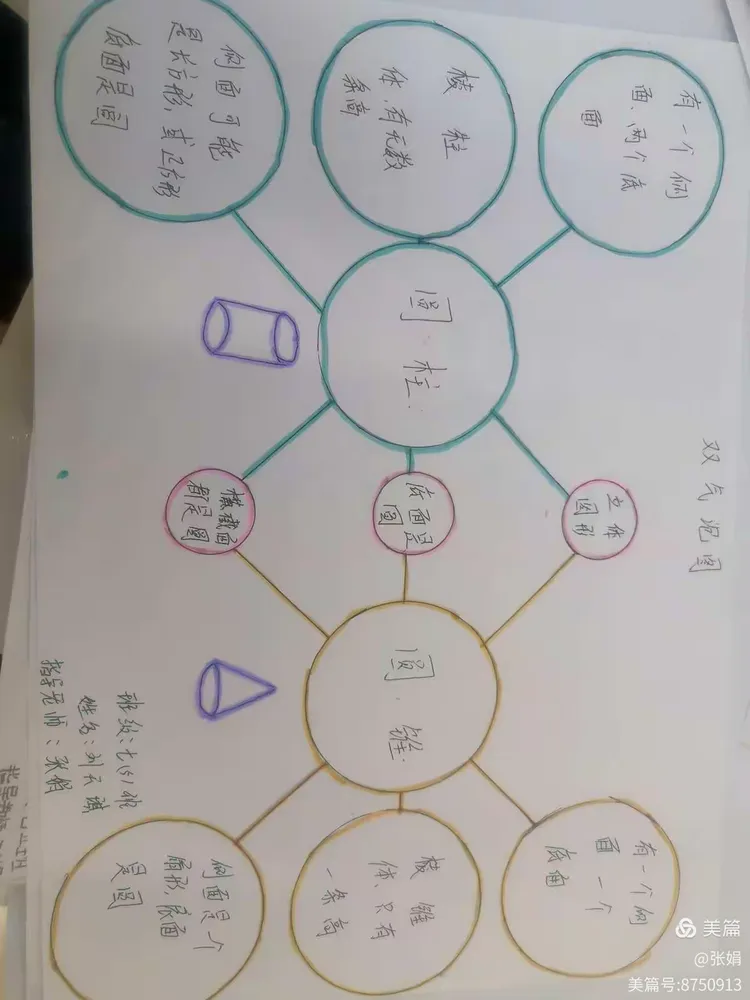 双气泡图
有一个侧
面、两个底
面
棱柱
体、有无数
条高
侧面可能
是长方形,或正方形
底面是圆
圆柱
立体
图形
底面是
圆
横截面
都是圆
圆锥
有一个侧
面一个
底面
棱锥
体、只有
一条高
侧面是个
扇形,底面
是圆
班级:七(5)班
指导老师:张娟
美篇
@张娟
美篇号:8750913